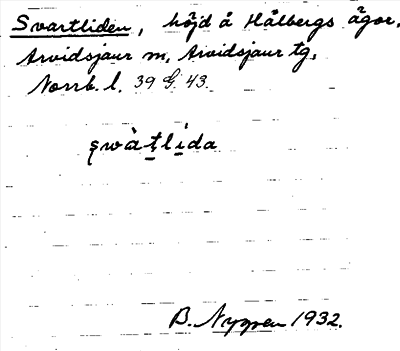 Svartliden, höjd å Hålbergs ägor,
Arvidsjaur m, Arvidsjaur tg,
Norrb. l. 39 G 43
swàtlida
B. Nygren 1932.